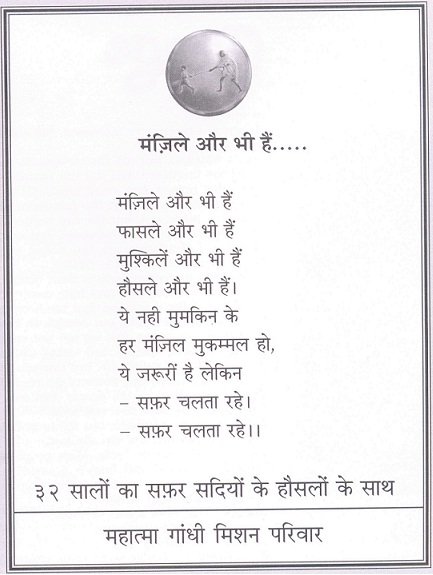 मंज़िले और भी हैं.....
मंज़िले और भी हैं
फासले और भी हैं
मुश्किलें और भी हैं
हौसले और भी हैं।
ये नही मुमकिन के
हर मंज़िल मुकम्मल हो,
ये जरूरीं है लेकिन
– सफ़र चलता रहे।
– सफ़र चलता रहे।।
३२ सालों का सफ़र सदियों के हौसलों के साथ
महात्मा गांधी मिशन परिवार